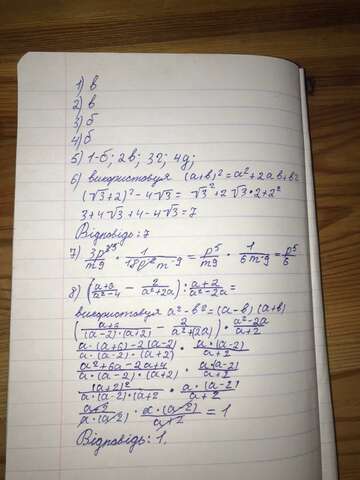 1) в
2) в
3) б
4) б
5) 1-б; 2в; 3г; 4д;
6) використовуя (a+b)²=a²+2ab+b²
(√3+2)²-4√3= √3²+2√3·2+2²
3+4√3+4-4√3=7
Відповідь: 7
7) 3p / m9 · 1 / 18p m⁻9 = p⁵ / m9 · 1 / 6m⁻9 = p⁵ / 6
8) (a+6 / a²-4 - 2 / a²+2a) : a+2 / a²-2a =
використовуя a²-b²=(a-b)(a+b)
(a+6 / (a-2)·(a+2) - 2 / a²+2a) · a²-2a / a+2
a·(a+6)-2(a-2) / a·(a-2)·(a+2) · a·(a-2) / a+2
a²+6a-2a+4 / a·(a-2)·(a+2) · a(a-2) / a+2
(a+2)² / a·(a-2)·(a+2 · a·(a-2) / a+2
a+2 / a·(a-2) · a·(a-2) / a+2 = 1
Відповідь: 1.